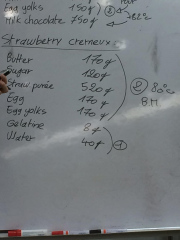 Egg yolks 150g
Milk chocolate 750g
Strawberry cremeux:
Butter 170g
Sugar 120g
Straw purée 520g
Egg 170g
Egg yolks 170g
Gelatine 8g
Water 40g
② 80°c
B.M
①